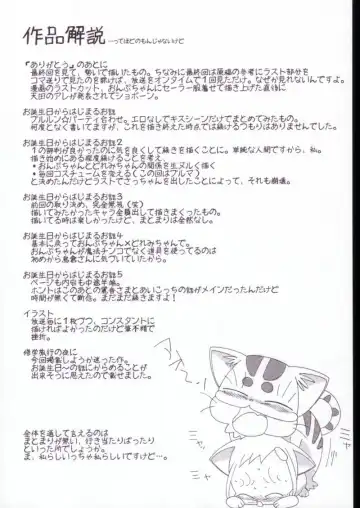 作品解説 …ってほどのもんじゃないけど
『ありがとう』のあとに
最終回を見て、勢いで描いたもの。ちなみに最終回は原稿の参考にラスト部分を
コマ送りで見たのを除けば、放送をオンタイムで1回見ただけ。なぜか見れないんですよ。
漫画のラストカット、おんぷちゃんにセーラー服着せて描き上げた直後に
天田のアレが発表されてショボーン。
お誕生日からはじまるお話
プルルン☆パーティ合わせ。エロなしでキスシーンだけでまとめてみたもの。
何度となく書いてますが、これを描き終えた時点では続けるつもりありませんでした。
お誕生日からはじまるお話2
1の評判が良かったのに気を良くして続きを描くことに。単純な人間ですから、私。
描き始めにある程度続けることを考え、
*おんぷちゃんとどれみちゃんの関係を生ヌルく描く
*毎回コスチュームを替える(この回はブルマ)
と決めたんだけどラストでさっちゃんを出したことによって、それも崩壊。
お誕生日からはじまるお話3
前回の取り決め、完全無視(笑)
描いてみたかったキャラ全員出して描きまくったもの。
描いてる時は楽しかったけど、まとまりは全然なし。
お誕生日からはじまるお話4
基本に戻っておんぷちゃん×どれみちゃん。
おんぷちゃんが魔法チンコでなく道具を使ってるのは
始めから島倉さんに気づいていたから。
お誕生日からはじまるお話5
ページも内容も中途半端。
ホントはこのあとの寛香さまとあいこっちの話がメインだったんだけど
時間が無くて断念。まだまだ続きますよ!
イラスト
放送毎に1枚づつ、コンスタントに
描ければよかったのだけど筆不精で
挫折。
修学旅行の夜に
今回掲載しようか迷った作。
お誕生日〜の話にからめることが
出来そうに思えたので載せました。
全体を通して言えるのは
まとまりが無い、行き当たりばったり
といった所でしょうか。
ま、私らしいっちゃ私らしいですけど…。
ミャ
ミャ